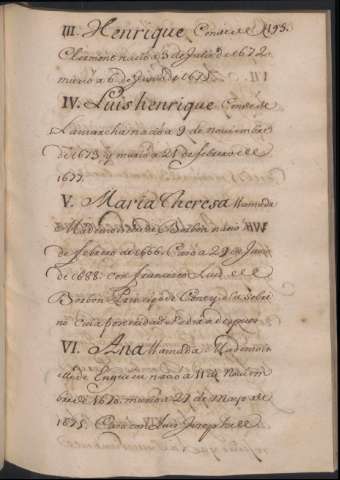 III. Henrique Conde de 195.
Clermont nació a 3 de Julio de 1672
murió a 6 de Junio de 1675.
IV. Luis henrique Conde de
Lamarcha nació a 9 de noviembre
de 1673 y murió a 21 de febrero de
1677.
V. Maria Theresa llamada
Madem de Borbon nació
de febrero de 1666. Casó a 29 de
de 1688. con Francisco Luis de
Borbon Principe de Conty, su Sobri
no cuia posteridad Pedra despues
VI. Ana llamada Mademois
elle de Enguien nació a 11 de Noviem
bre de 1670. murio a 27 de Mayo de
1675. Caso con Luis Joseph de